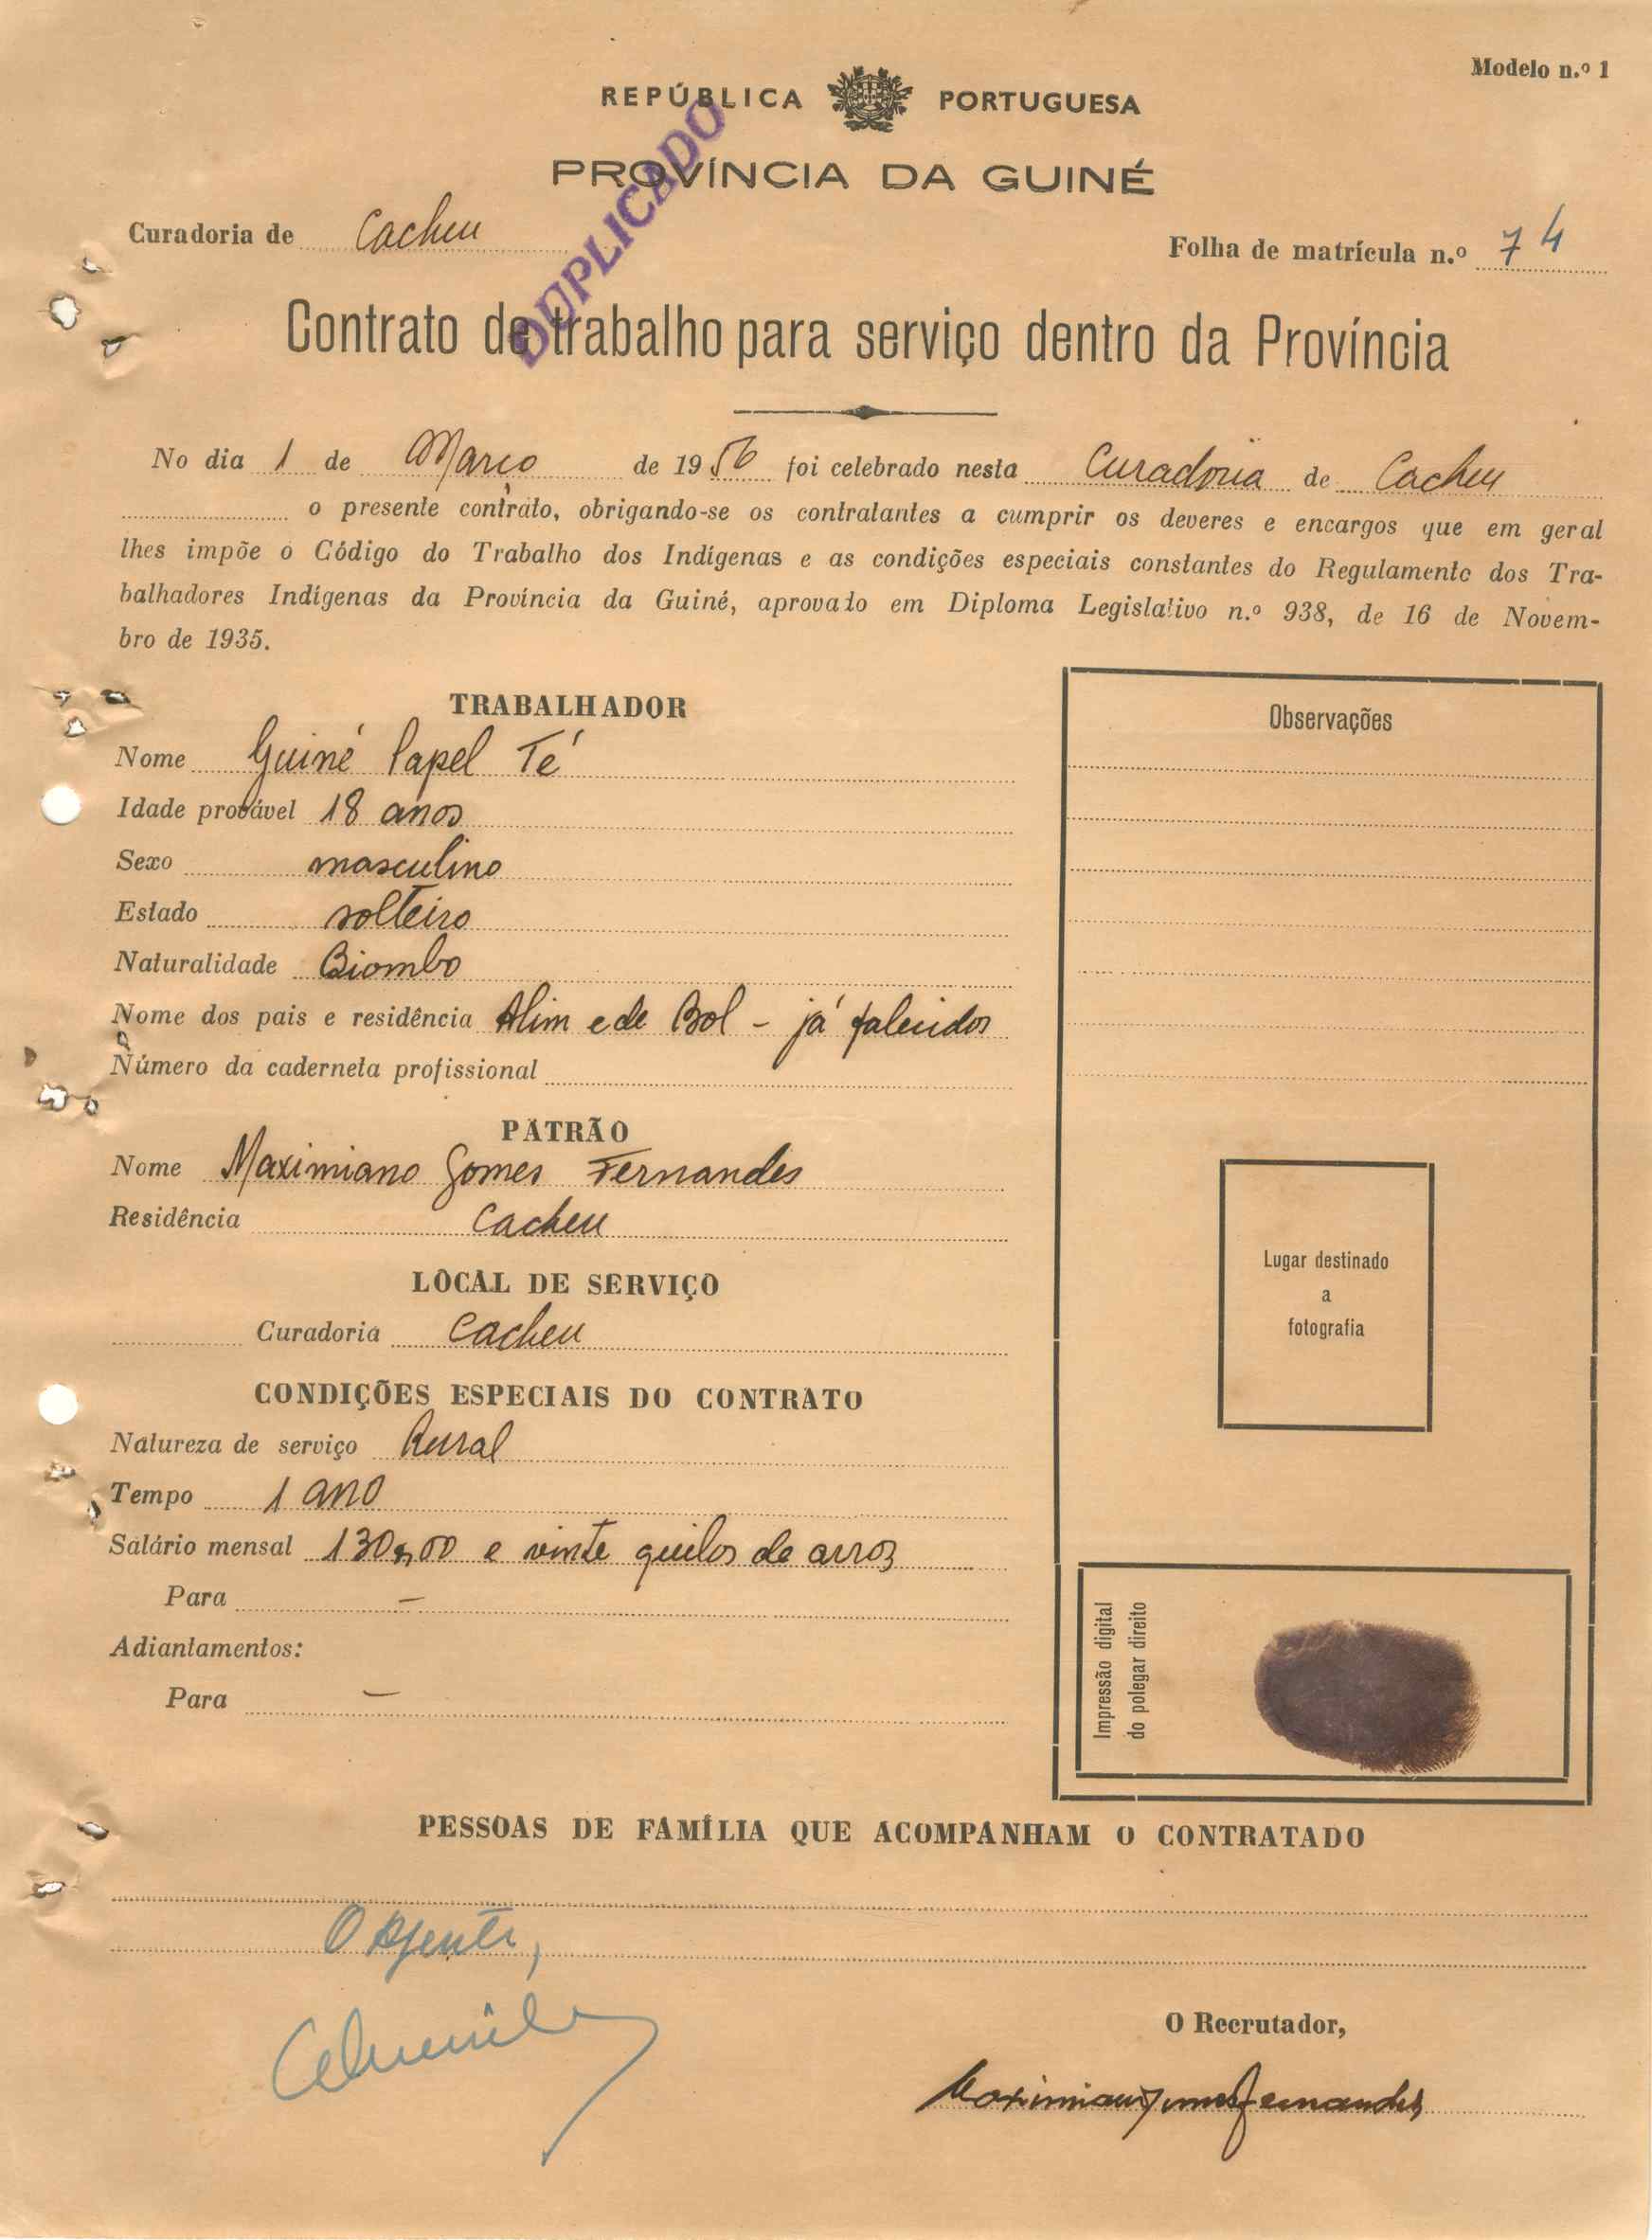 Modelo n.º 1
REPÚBLICA PORTUGUESA
DUPLICADO
PROVÍNCIA DA GUINÉ
Curadoria de Cacheu
Folha de matrícula n.º 74
Contrato de trabalho para serviço dentro da Província
No dia 1 de Março de 1956 foi celebrado nesta Curadoria de Cacheu
o presente contrato, obrigando-se os contratantes a cumprir os deveres e encargos que em geral
lhes impõe o Código do Trabalho dos Indígenas e as condições especiais constantes do Regulamento dos Tra-
balhadores Indígenas da Província da Guiné, aprovado em Diploma Legislativo n.º 938, de 16 de Novem-
bro de 1935.
TRABALHADOR
Nome Guiné Papel Té
Idade provável 18 anos
Sexo masculino
Estado solteiro
Naturalidade Biombo
Nome dos pais e residência Alim e de Bol - já falecidos
Número da caderneta profissional
PATRÃO
Nome Maximiano Gomes Fernandes
Residência Cacheu
LOCAL DE SERVIÇO
Curadoria Cacheu
CONDIÇÕES ESPECIAIS DO CONTRATO
Natureza de serviço Rural
Tempo 1 ano
Salário mensal 130$00 e vinte quilos de arroz
Para –
Adiantamentos:
Para –
Observações
Lugar destinado
a
fotografia
Impressão digital
do polegar direito
PESSOAS DE FAMÍLIA QUE ACOMPANHAM O CONTRATADO
O Agente,
O Recrutador,
Maximiano Gomes Fernandes